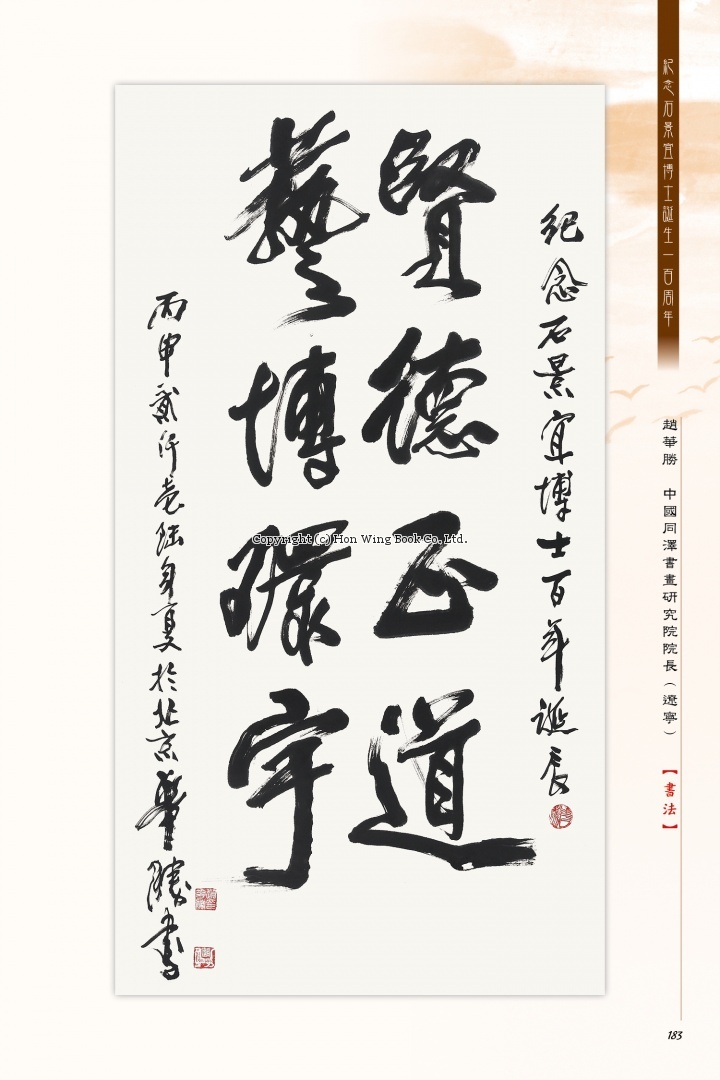 紀念石景宜博士誕生一百周年
趙華勝 中國同澤書畫研究院院長（遼寧）
【書法】
紀念石景宜博士百年誕辰
賢德正道
藝博環宇
丙申貳仟壱陆年夏於北京華勝書
Copyright (c) Hon Wing Book Co., Ltd.
183